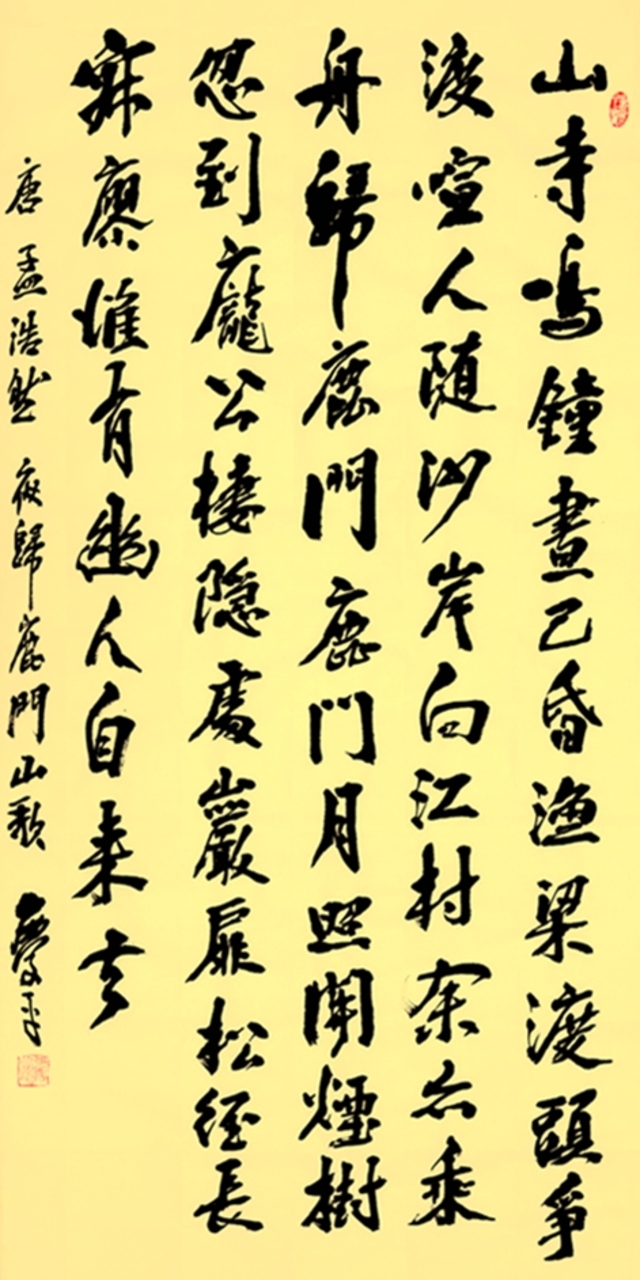 山寺鳴鐘晝已昏漁梁渡頭爭
渡喧人随沙岸向江村余亦乘
舟歸鹿門鹿門月照開煙樹
忽到龐公棲隐處巖扉松徑長
寂寥惟有幽人自来去
唐孟浩然夜歸鹿門山歌